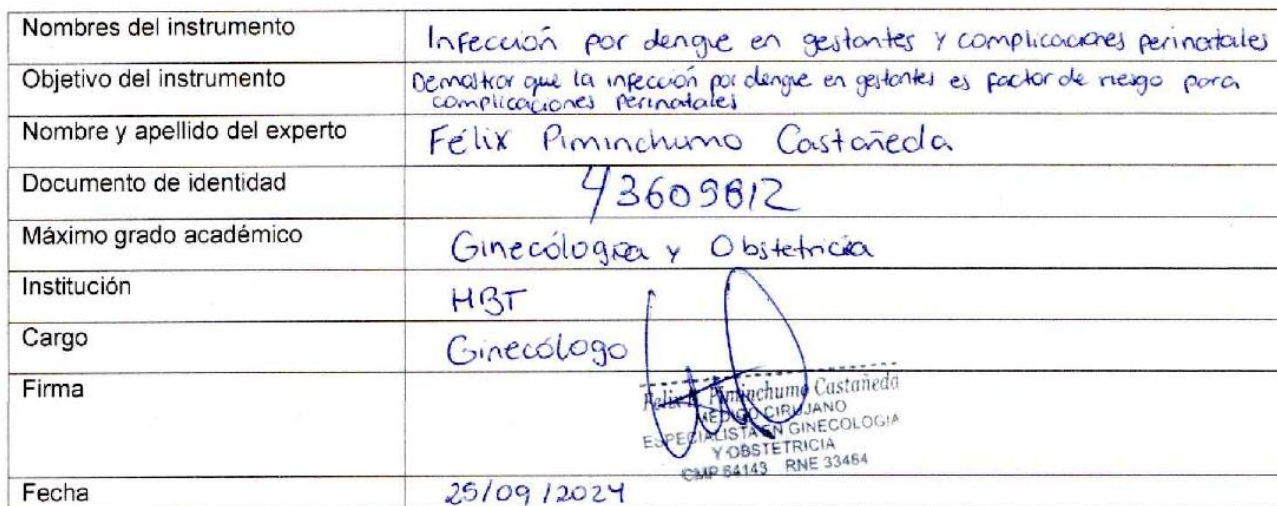 Nombres del instrumento
Infección por dengue en gestantes y complicaciones perinatales
Objetivo del instrumento
Demostrar que la infección por dengue en gestantes es factor de riesgo para
complicaciones perinatales
Nombre y apellido del experto
Félix Piminchumo Castañeda
Documento de identidad
43609812
Máximo grado académico
Ginecología y Obstetricia
Institución
HBT
Cargo
Ginecólogo
Firma
Piminchumo Castañeda
MEDICO CIRUJANO
ESPECIALISTA EN GINECOLOGIA
Y OBSTETRICIA
CMP 64143 RNE 33464
Fecha
25/09/2024